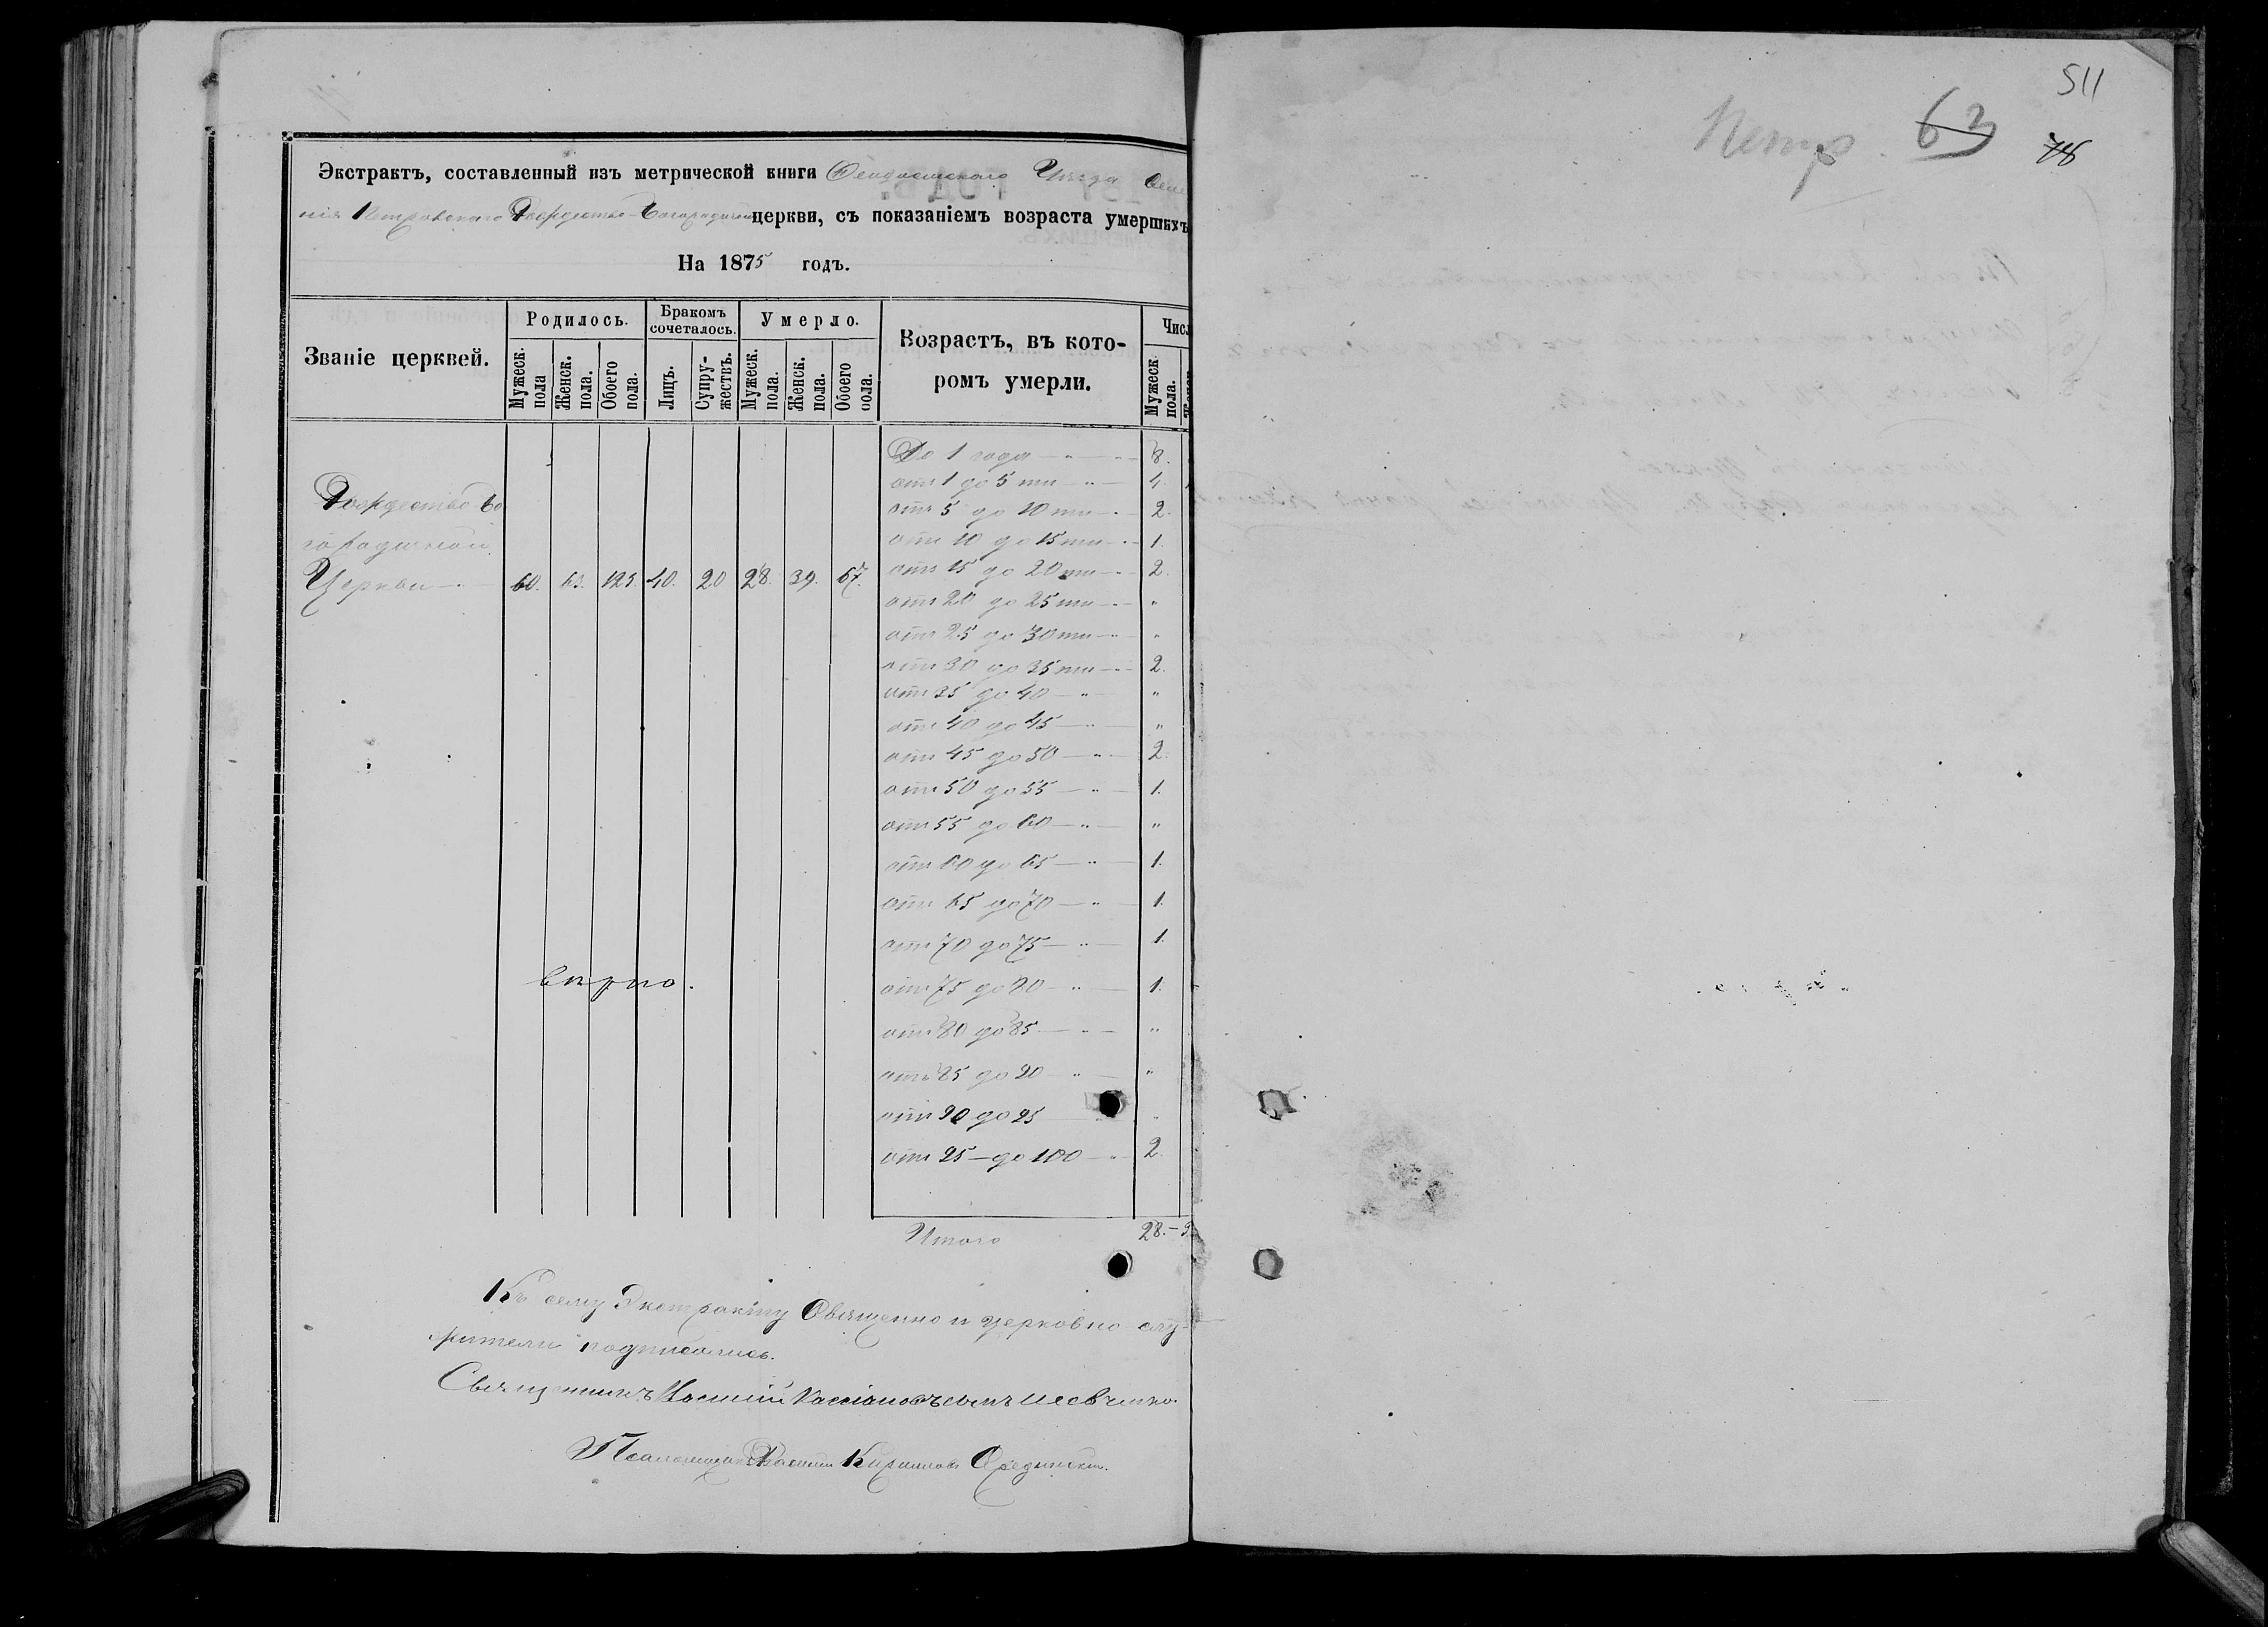 Экстрактъ, составленный изъ метрической книги Ѳеодосійскаго Уѣзда Селе
нія Петровскаго Рождество-Богородичной церкви, съ показаніемъ возраста умершихъ
На 1875 годъ.
Званіе церквей.
Родилось.
Мужеск. пола
Женск. пола.
Обоего пола.
Бракомъ сочеталось.
Лицъ.
Супружествъ.
Умерло.
Мужеск. пола.
Женск. пола.
Обоего пола.
Возрастъ, въ которомъ умерли.
Числ
Мужеск. пола.
Рождество Бо
городичной
Церкви 60. 63. 123. 40. 20 28. 39. 67.
До 1 года — " — 8.
отъ 1 до 5 ти — " — 4.
отъ 5 до 10 ти — " 2.
отъ 10 до 15 ти — " 1.
отъ 15 до 20 ти — " 2.
отъ 20 до 25 ти — " — "
отъ 25 до 30 ти — " — "
отъ 30 до 35 ти — " — 2.
отъ 35 до 40 — " — "
отъ 40 до 45 — " — "
отъ 45 до 50 — " — 2.
отъ 50 до 55 — " — 1.
отъ 55 до 60 — " — "
отъ 60 до 65 — " — 1.
отъ 65 до 70 — " — 1.
отъ 70 до 75 — " — 1.
отъ 75 до 80 — " — 1.
отъ 80 до 85 — " — "
отъ 85 до 90 — " — "
отъ 90 до 95 "
отъ 95 — до 100 — " 2.
вѣрно.
Итого 28. —
Къ сему Экстракту Священно и церковно слу-
жители подписались.
Священникъ Кассіановъ сынъ
Псаломщикъ Василій Кирилловъ
511
Петр. 63
78